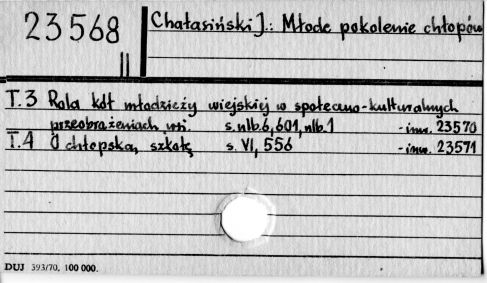 23568
II
Chałasiński J.: Młode pokolenie chłopów
T.3 Rola kół młodzieży wiejskiej w społeczno-kulturalnych
przeobrażeniach wsi. s. nlb. 6, 601, nlb. 1 - inw. 23570
T.4 O chłopską szkołę s. VI, 556 - inw. 23571
DUJ 393/70, 100 000.